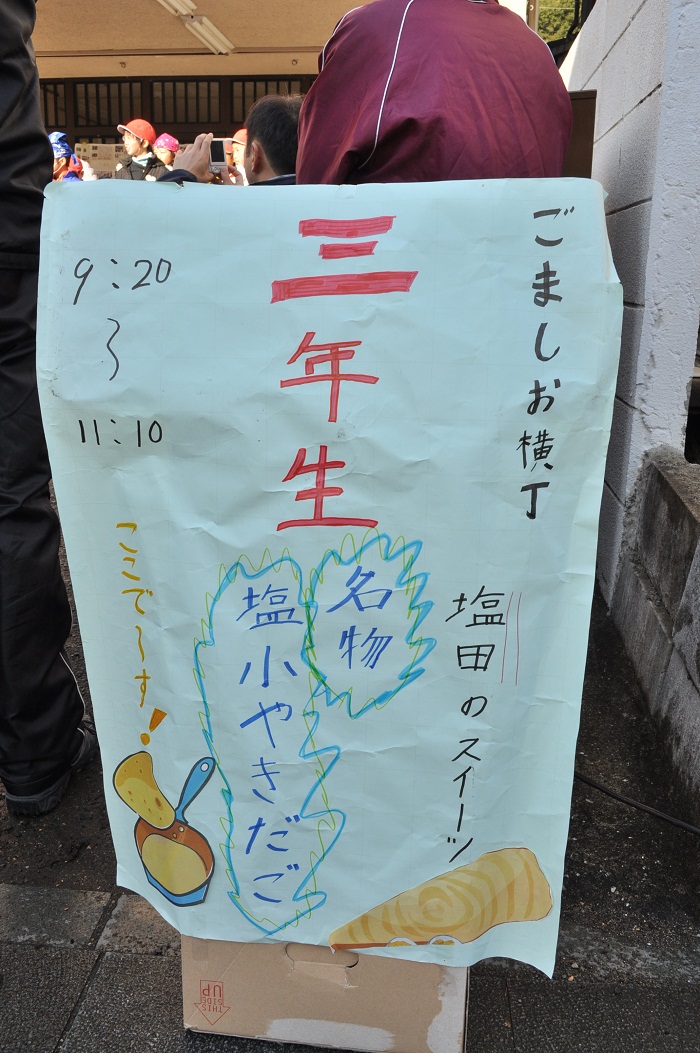 ごましお横丁
塩田のスイーツ
三年生
名物
塩小やきだご
9:20
〜
11:10
ここで〜す!
THIS
SIDE
UP